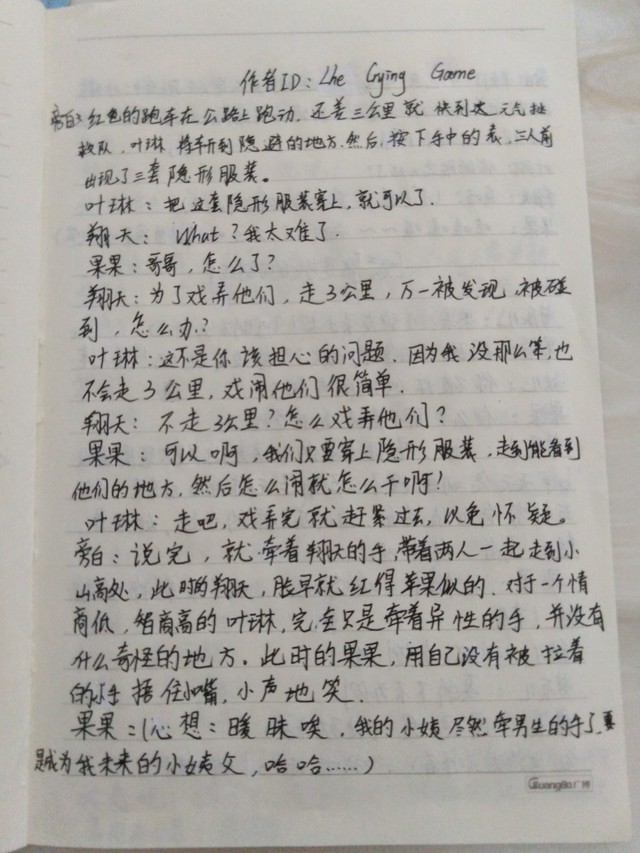 作者ID：Lhe Crying Game
旁白：红色的跑车在公路上跑动，还差三公里就快到达元气拯
救队，叶琳将车听到隐避的地方，然后，按下手中的表，三人前
出现了三套隐形服装。
叶琳：把这套隐形服装穿上，就可以了。
翔天：What？我太难了．
果果：哥哥，怎么了？
翔天：为了戏弄他们，走3公里，万一被发现，被碰
到，怎么办？
叶琳：这不是你该担心的问题．因为我没那么笨，也
不会走3公里，戏闹他们很简单．
翔天：不走3公里？怎么戏弄他们？
果果：可以啊，我们只要穿上隐形服装，走到能看到
他们的地方，然后怎么闹就怎么干啊！
叶琳：走吧，戏弄完就赶紧过去，以免怀疑。
旁白：说完，就牵着翔天的手，带着两人一起走到小
山高处，此时的翔天，脸早就红得苹果似的．对于一个情
商低，智商高的叶琳，完全只是牵着异性的手，并没有
什么奇怪的地方．此时的果果，用自己没有被拉着
的小手捂住小嘴，小声地笑．
果果：（心想：暧昧唉，我的小姨尽然牵男生的手了，要
是成为我未来的小姨父，哈哈……）
GuangBo广博